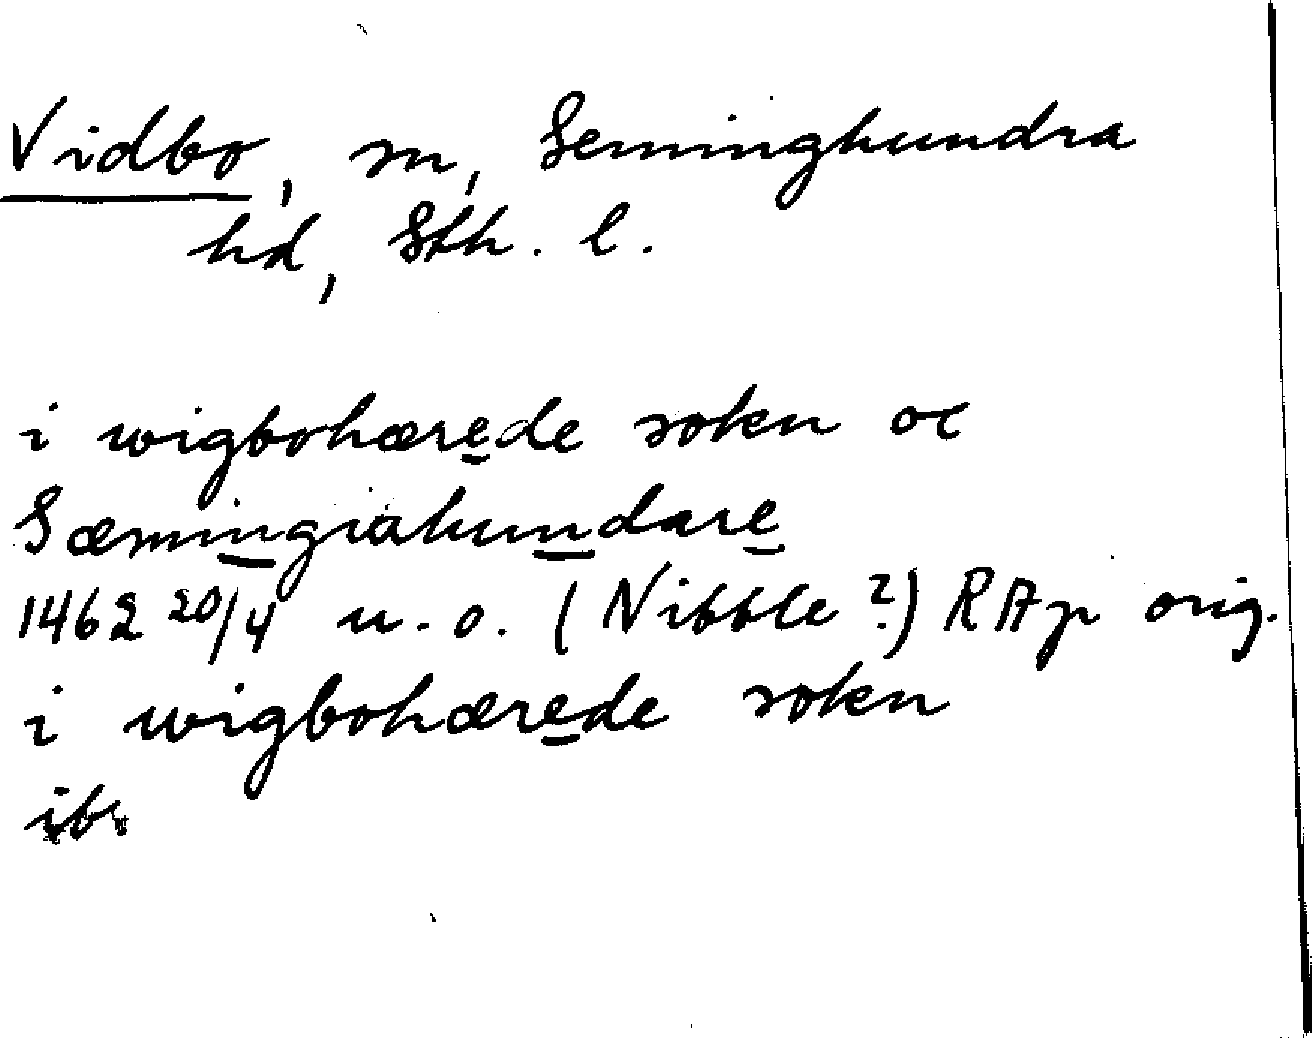 Vidbo, sn, Seminghundra
hd, Sth. l.
i wigbohærede sokn oc
Sæmingiahundare
1462 20/4 u.o. (Nibble?) RAp orig.
i wigbohærede sokn
ib.